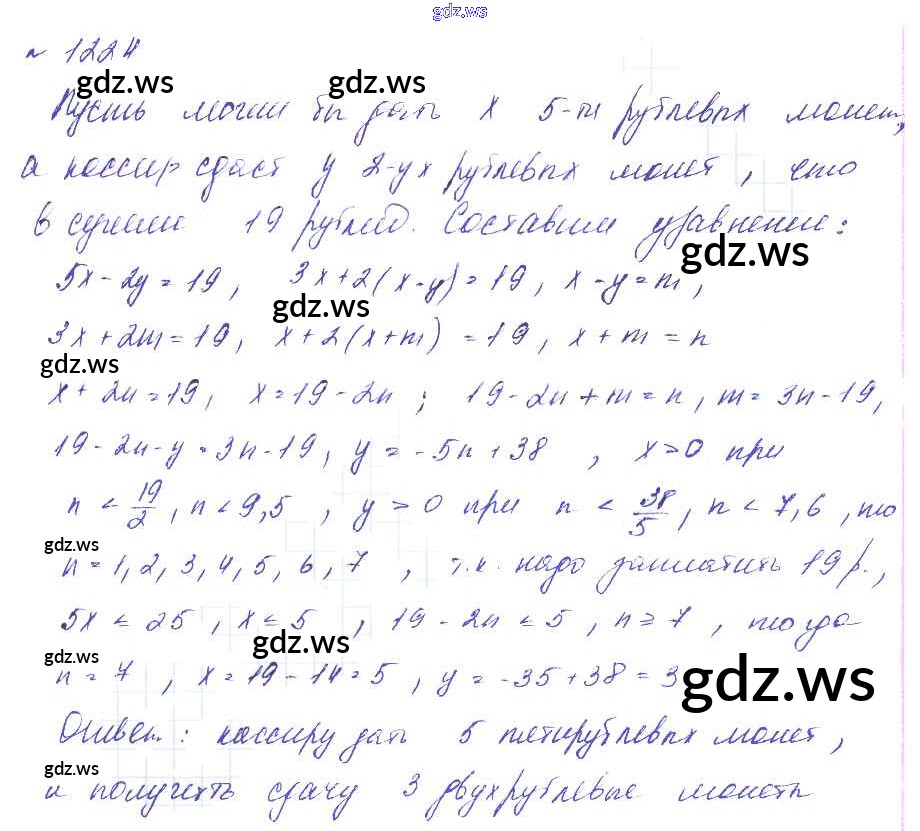 gdz.ws
№ 1224
gdz.ws gdz.ws
Пусть могли бы дать x 5-ти рублевых монет,
а кассир сдаст y 2-ух рублевых монет, что
в сумме 19 рублей. Составим уравнение:
gdz.ws
5x - 2y = 19, 3x + 2(x - y) = 19, x - y = m,
gdz.ws
3x + 2m = 19, x + 2(x + m) = 19, x + m = n
gdz.ws
x + 2n = 19, x = 19 - 2n ; 19 - 2n + m = n, m = 3n - 19,
19 - 2n - y = 3n - 19, y = -5n + 38 , x > 0 при
n < 19/2, n < 9,5 , y > 0 при n < 38/5, n < 7,6 , то
gdz.ws
n = 1, 2, 3, 4, 5, 6, 7 , т.к. надо заплатить 19 р.,
5x ≤ 25 , x ≤ 5 , 19 - 2n ≤ 5 , n ≥ 7 , тогда
gdz.ws gdz.ws gdz.ws
n = 7 , x = 19 - 14 = 5 , y = -35 + 38 = 3
Ответ: кассиру дать 5 пятирублевых монет,
gdz.ws
и получить сдачу 3 двухрублевые монеты